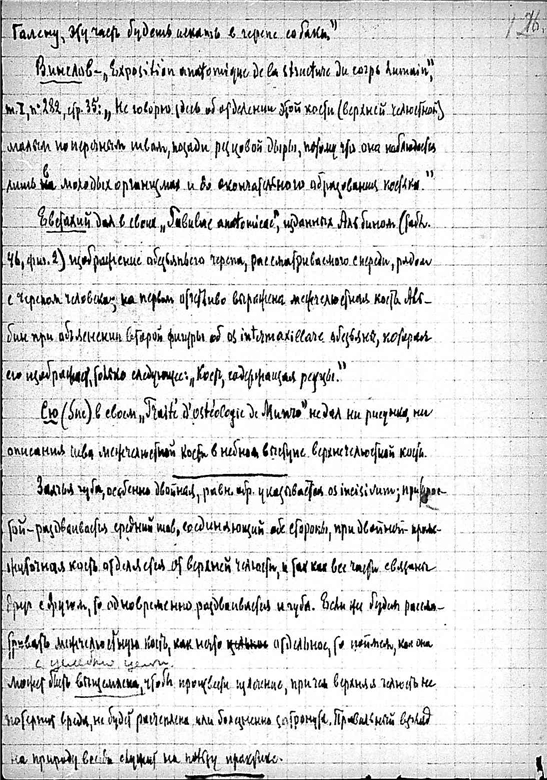 176.
Галену, эту часть будет искать в черепе собаки."
Винслов – „Exposition anatomique de la structure du corps humain",
т. I, n° 282, стр. 35: „Не говорю здесь об отделении этой кости (верхней челюстной)
малым поперечным швом, позади резцовой дыры, потому что она наблюдается
лишь в молодых организмах и до окончательного образования костяка."
Евстахий дал в своих „Tabulae anatomicae", изданных Альбином (tabl.
46, фиг. 2) изображение обезьяньего черепа, рассматриваемого спереди, рядом
с черепом человека; на первом отчетливо выражена межчелюстная кость. Аль-
бин при объяснении второй фигуры об os intermaxillare обезьяны, которая
его изображает, только следующее: „Кость, содержащая резцы."
Сю (Sue) в своем „Traité d'ostéologie de Monro" не дал ни рисунка, ни
описания шва межчелюстной кости в небном выступе верхнечелюстной кости.
Заячья губа, особенно двойная, равн. обр. указывается os incisivum; при прос-
той – раздваивается средний шов, соединяющий обе стороны, при двойной – проме-
жуточная кость отделяется от верхней челюсти, и так как все части связаны
друг с другом, то одновременно раздваивается и губа. Если же будем рассма-
тривать межчелюстную кость, как нечто отдельное, то поймем, как она
с целебной целью
может быть вытеснена, чтобы произвести исцеление, причем верхняя челюсть не
потерпит вреда, не будет расчеплена или болезненно затронута. Правильный взгляд
на природу всегда служит на пользу практике.